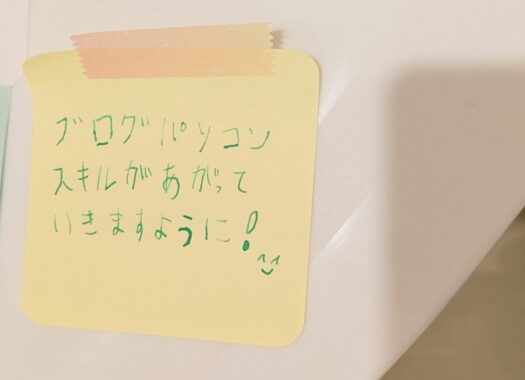 ブログパソコン
スキルがあがって
いきますように!
^^